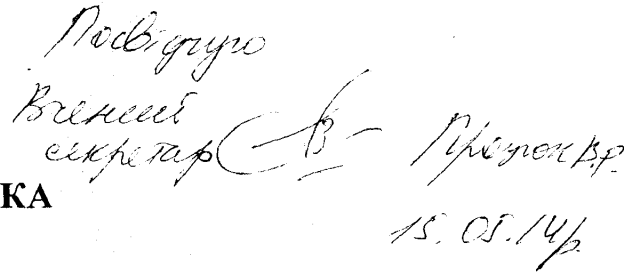 Посвідчую
Вчений
секретар
КА
15.05.14р.